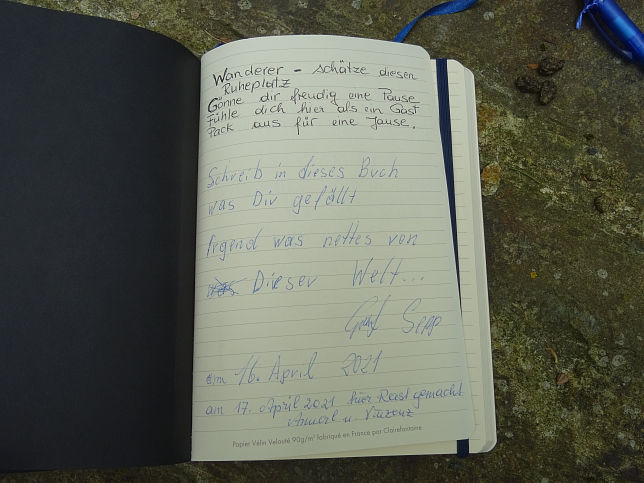 Wanderer - schätze diesen
Ruheplatz
Gönne dir freudig eine Pause
Fühle dich hier als ein Gast
Pack aus für eine Jause.
Schreib in dieses Buch
was Dir gefällt
Irgend was nettes von
Dieser Welt...
Sepp
am 16. April 2021
am 17. April 2021 hier Rast gemacht
u. Vinzenz
Papier Vélin Velouté 90g/m² fabriqué en France par Clairefontaine